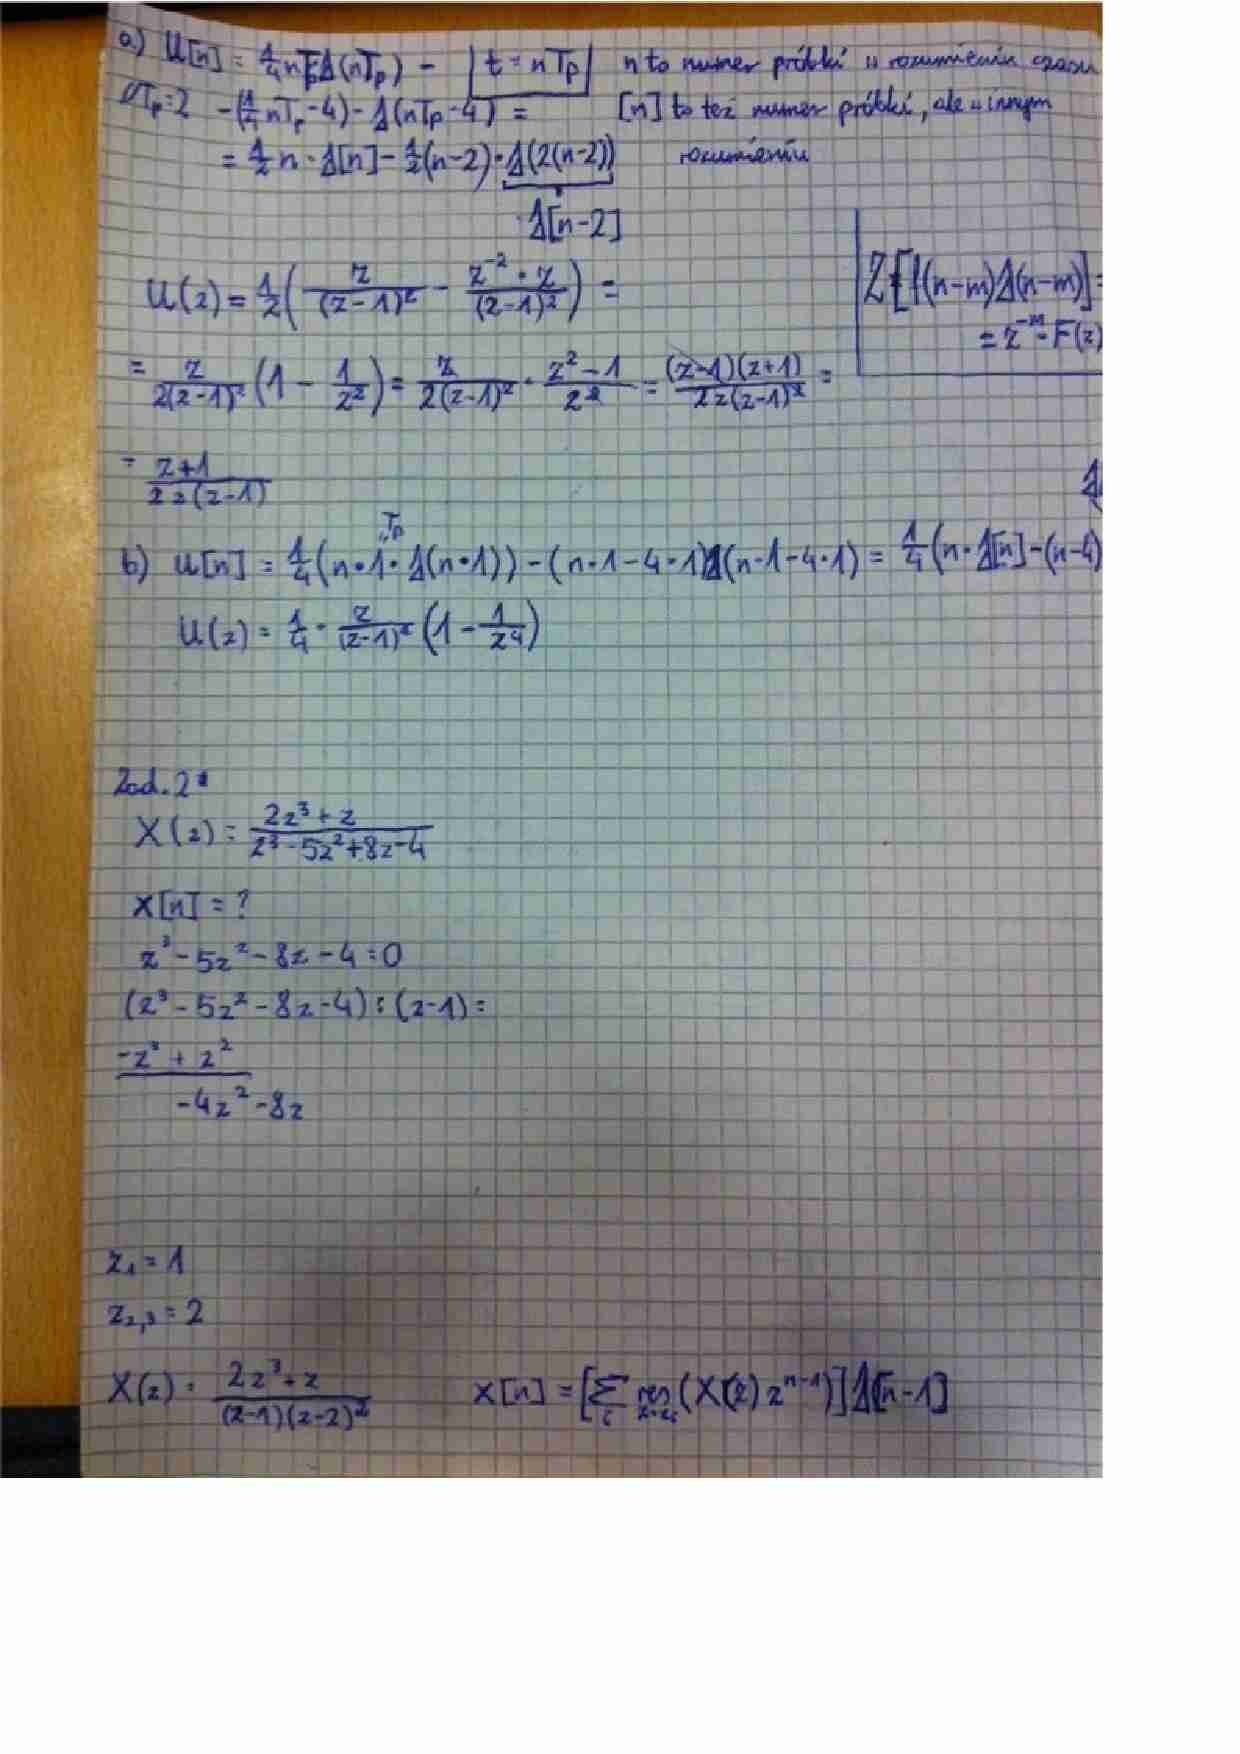 a) U[n] = 1/4 nTp 1(nTp) - | t = nTp | n to numer próbki w rozumieniu czasu
Tp=2 - (1/4 nTp - 4) - 1(nTp - 4) = [n] to też numer próbki, ale w innym
= 1/2 n · 1[n] - 1/2 (n-2) · 1(2(n-2)) rozumieniu
1[n-2]
U(z) = 1/2 ( z/(z-1)² - z⁻² · z/(z-1)² ) =
Z[f(n-m)1(n-m)] =
= z⁻ᵐ · F(z)
= z/2(z-1)² (1 - 1/z²) = z/2(z-1)² · z²-1/z² = (z-1)(z+1)/2z(z-1)² =
= z+1/2z(z-1)
Tp
b) U[n] = 1/4 (n·1·1(n·1)) - (n·1-4·1)1(n·1-4·1) = 1/4 (n·1[n] - (n-4)
U(z) = 1/4 · z/(z-1)² (1 - 1/z⁴)
Zad. 2
X(z) = 2z³+z/z³-5z²+8z-4
X[n] = ?
z³-5z²-8z-4=0
(z³-5z²-8z-4):(z-1)=
-z³+z²
-4z²-8z
z₁=1
z₂,₃=2
X(z) = 2z³+z/(z-1)(z-2)² x[n] = [Σ i res z=zi (X(z) zⁿ⁻¹)] 1[n-1]